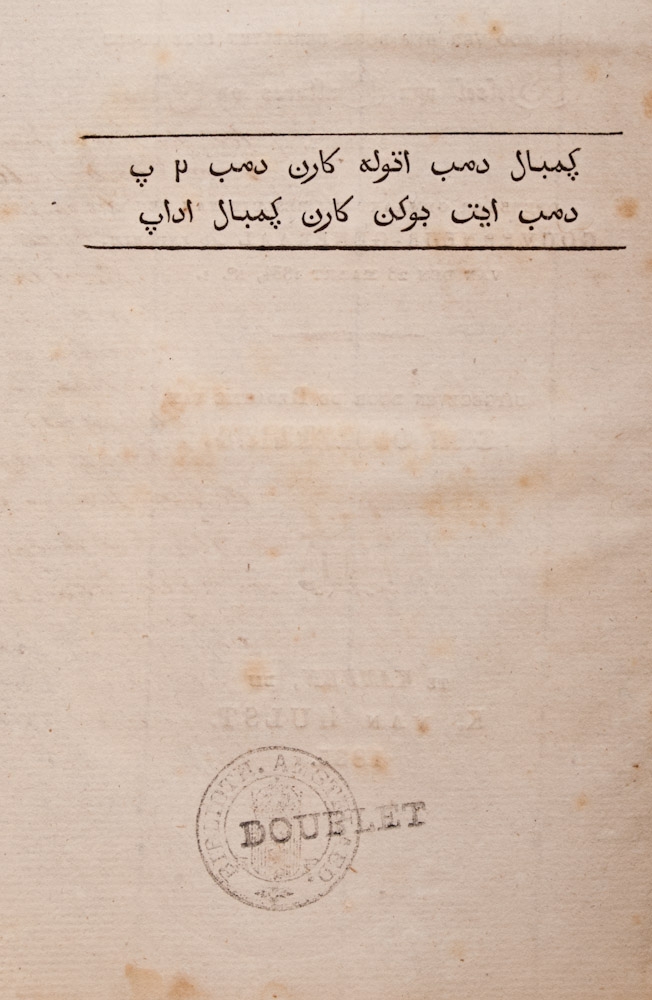 كمبال دمب اتوله كارن دمب ٢ ڤ
دمب ايت بوكن كارن كمبال اداڤ
BIBLIOTH. AMSTELÆD.
DOUBLET